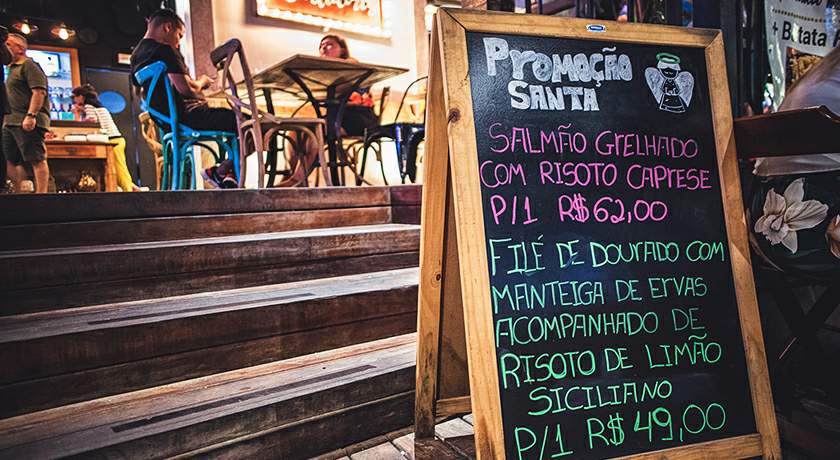 Promoção
SANTA
SALMÃO GRELHADO
COM RISOTO CAPRESE
P/1 R$62,00
FILÉ DE DOURADO COM
MANTEIGA DE ERVAS
ACOMPANHADO DE
RISOTO DE LIMÃO
SICILIANO
P/1 R$ 49,00
+ Batata